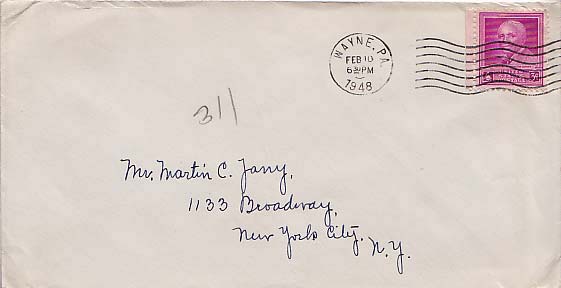 WAYNE, PA.
FEB 10
6 30 PM
1948
311
Mr. Martin C. Jany,
1133 Broadway,
New York City, N.Y.